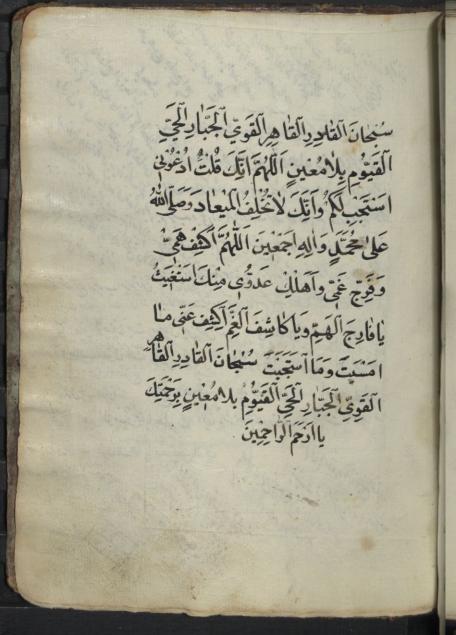 سُبْحانَ القٰادِرِ القٰاهِرِ القَوِيِّ الجَبّٰارِ الحَيِّ
القَيُّومِ بِلا مُعْينٍ اَللّهُمَّ اِنَّكَ قُلْتَ اُدْعُوْنِي
اَسْتَجِبْ لَكُمْ وَاِنَّكَ لاٰ تُخْلِفُ المْيعٰادَ وَصَلَّى اللهُ
عَلىٰ مُحَمَّدٍ وَاٰلِهِ اَجْمَعْينَ اَللّٰهُمَّ اكْشِفْ هَمّيْ
وَفَرِّجْ غَمّيْ وَاَهْلِكْ عَدُوّي مِنْكَ اَسْتَغْيثُ
يا فارِجَ الهَمِّ وَيا كاشِفَ الغَمِّ اكْشِفْ عَنّي ما
اَمْسَيْتُ وَمَا سُبْحٰانَ القٰادِرِ القٰاهِرِ
القَوِيِّ الجَبّٰارِ الحَيِّ القَيُّومِ بِلا مُعْينٍ بِرَحْمَتِكَ
يا اَرْحَمَ الرّاحِمْينَ